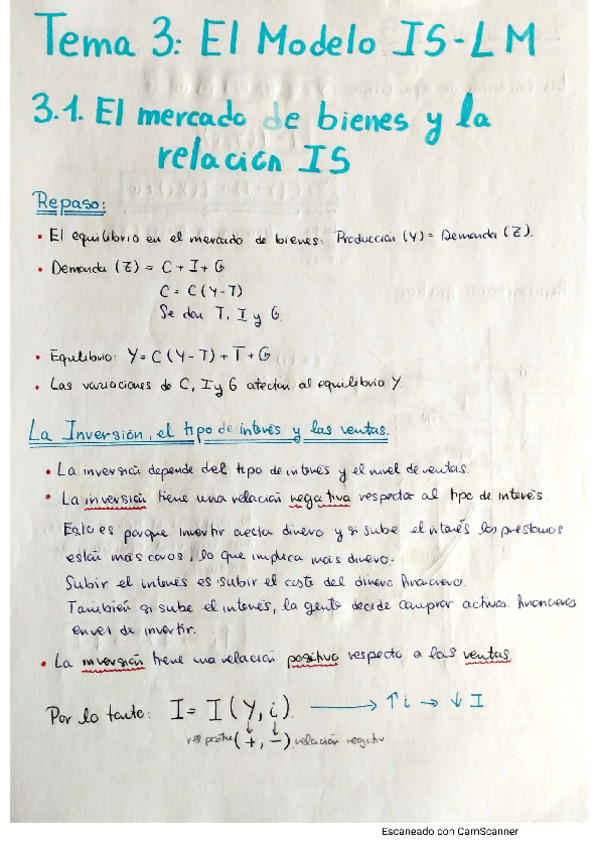 Tema 3: El Modelo IS-LM
3.1. El mercado de bienes y la
relación IS
Repaso:
• El equilibrio en el mercado de bienes: Producción (Y) = Demanda (Z).
• Demanda (Z) = C + I + G
C = C (Y-T)
Se dan T, I y G.
• Equilibrio: Y = C (Y-T) + I + G
• Las variaciones de C, I y G afectan al equilibrio Y.
La Inversión, el tipo de interés y las ventas.
• La inversión depende del tipo de interés y el nivel de ventas.
• La inversión tiene una relación negativa respecto al tipo de interés.
Esto es porque invertir cuesta dinero y si sube el interés los préstamos
están más caros, lo que implica más dinero.
Subir el interés es subir el coste del dinero financiero.
También si sube el interés, la gente decide comprar activos financieros
en vez de invertir.
• La inversión tiene una relación positiva respecto a las ventas
Por lo tanto: I = I (Y, i). → ↑ i → ↓ I
positiva (+, -) relación negativa
Escaneado con CamScanner